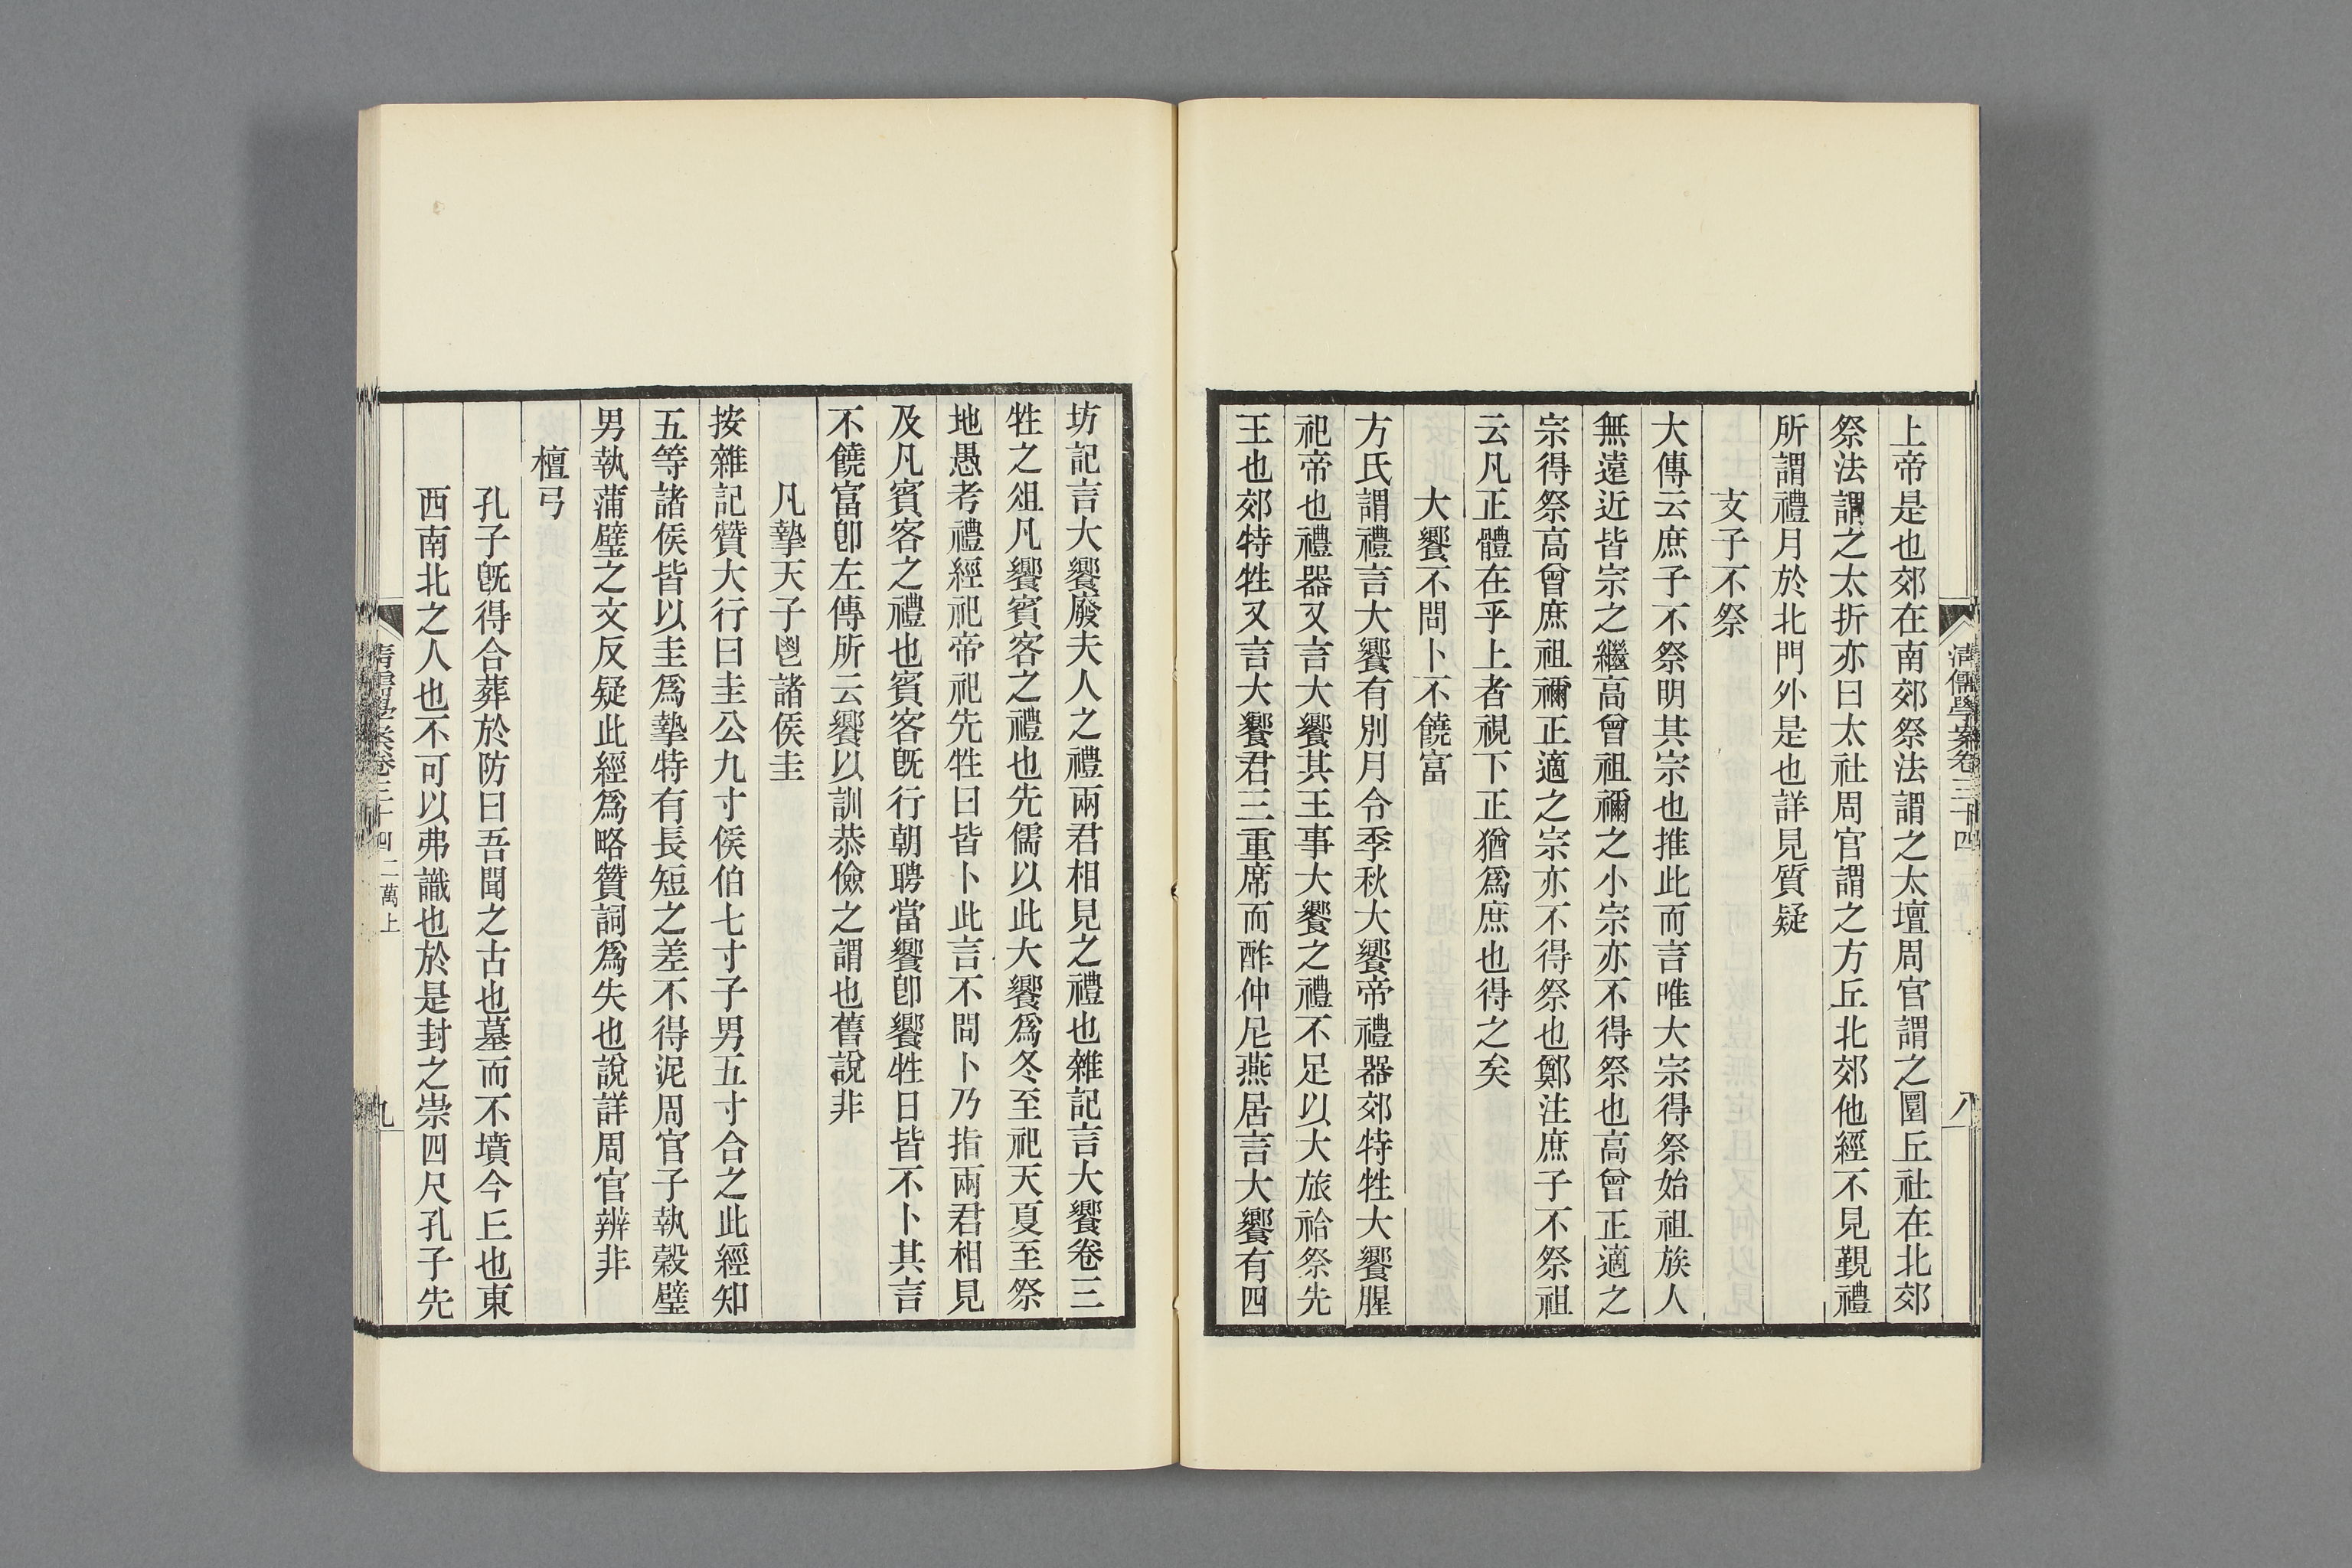 上帝是也郊在南郊祭法謂之太壇周官謂之圜丘社在北郊
祭法謂之太折亦曰太社周官謂之方丘北郊他經不見覲禮
所謂禮月於北門外是也詳見質疑
支子不祭
大傳云庶子不祭明其宗也推此而言唯大宗得祭始祖族人
無遠近皆宗之繼高曾祖禰之小宗亦不得祭也高曾正適之
宗得祭高曾庶祖禰正適之宗亦不得祭也鄭注庶子不祭祖
云凡正體在乎上者視下正猶爲庶也得之矣
大饗不問卜不饒富
方氏謂禮言大饗有別月令季秋大饗帝禮器郊特牲大饗腥
祀帝也禮器又言大饗其王事大饗之禮不足以大旅祫祭先
王也郊特牲又言大饗君三重席而酢仲尼燕居言大饗有四
清儒學案卷三十四
八
坊記言大饗廢夫人之禮兩君相見之禮也雜記言大饗卷三
牲之俎凡饗賓客之禮也先儒以此大饗爲冬至祀天夏至祭
地愚考禮經祀帝祀先牲日皆卜此言不問卜乃指兩君相見
及凡賓客之禮也賓客旣行朝聘當饗卽饗牲日皆不卜其言
不饒富卽左傳所云饗以訓恭儉之謂也舊說非
凡摯天子鬯諸侯圭
按雜記贊大行曰圭公九寸侯伯七寸子男五寸合之此經知
五等諸侯皆以圭爲摯特有長短之差不得泥周官子執榖璧
男執蒲璧之文反疑此經爲略贊詞爲失也說詳周官辨非
檀弓
孔子旣得合葬於防曰吾聞之古也墓而不墳今丘也東
西南北之人也不可以弗識也於是封之崇四尺孔子先
清儒學案卷三十四 二萬上
九